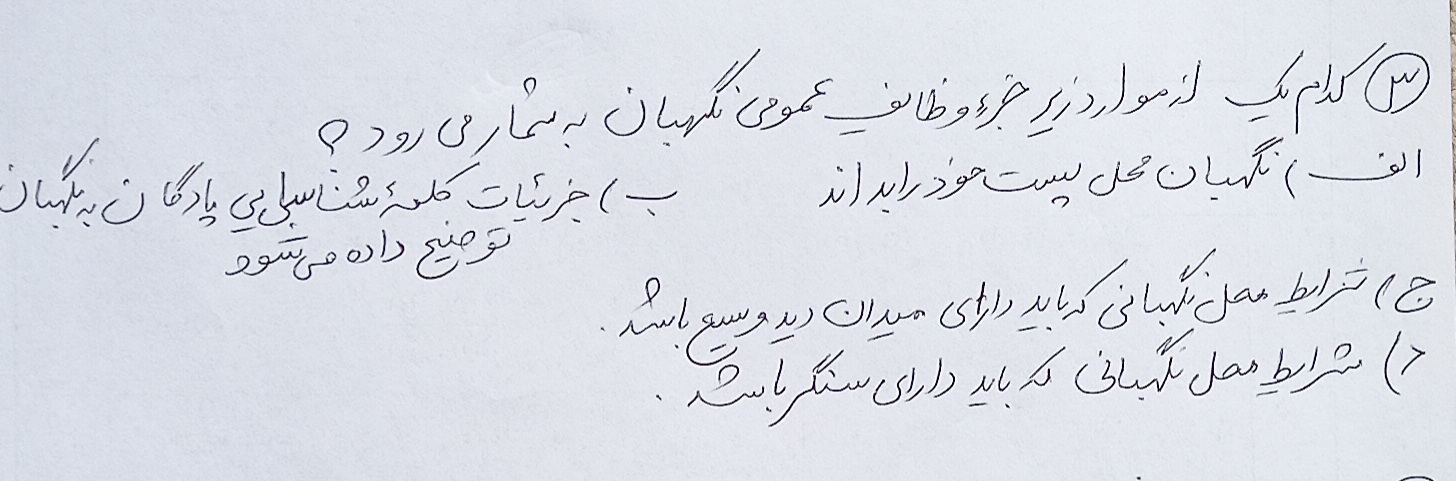 ۳ کدام یک از موارد زیر جزء وظایف عمومی نگهبان به شمار می رود ؟
الف ) نگهبان محل پست خود را بداند ب ) جزئیات کلمهٔ شناسایی پادگان به نگهبان
توضیح داده می شود
ج ) شرایط محل نگهبانی که باید دارای میدان دید وسیع باشد .
د ) شرایط محل نگهبانی که باید دارای سنگر باشد .